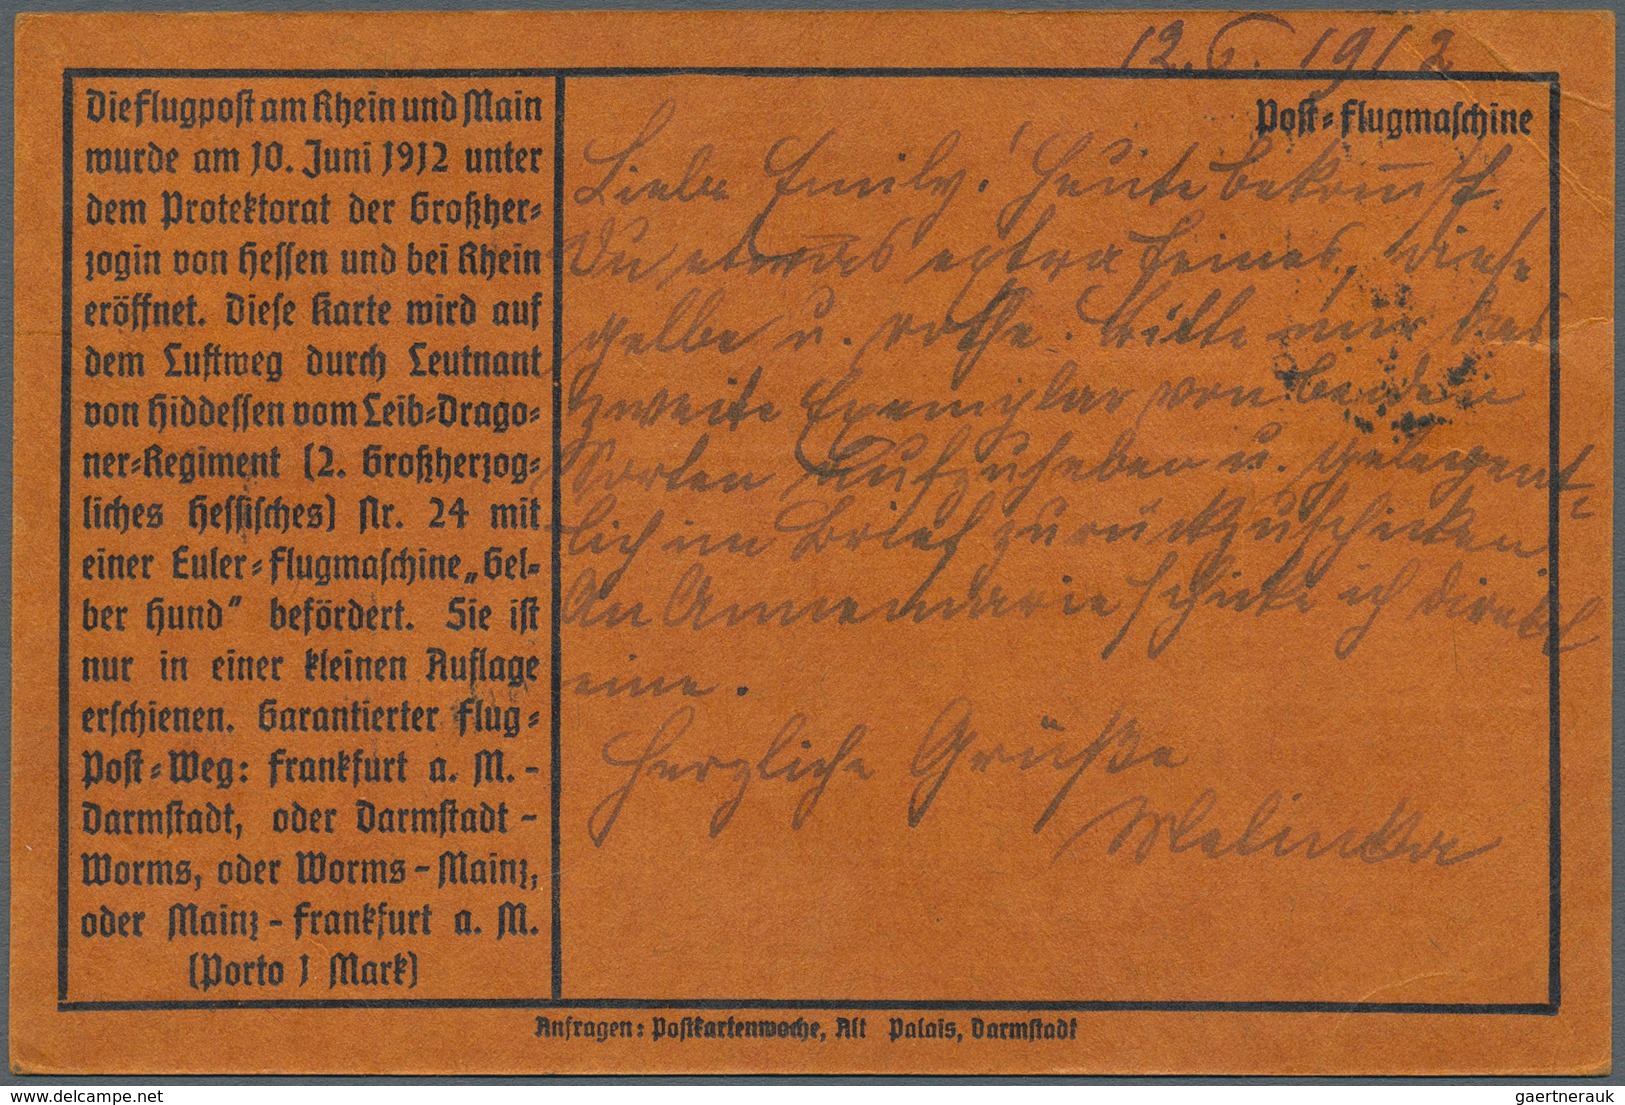 12. 6. 1912
Die Flugpost am Rhein und Main
wurde am 10. Juni 1912 unter
dem Protektorat der Großher-
zogin von Hessen und bei Rhein
eröffnet. Diese Karte wird auf
dem Luftweg durch Leutnant
von Hiddessen vom Leib-Drago-
ner-Regiment (2. Großherzog-
liches Hessisches) Nr. 24 mit
einer Euler-Flugmaschine „Gel-
ber Hund" befördert. Sie ist
nur in einer kleinen Auflage
erschienen. Garantierter Flug-
Post-Weg: Frankfurt a. M.-
Darmstadt, oder Darmstadt-
Worms, oder Worms-Mainz,
oder Mainz-Frankfurt a. M.
(Porto 1 Mark)
Post-Flugmaschine
Liebe Emily! Heute bekommst
Du etwas extra feines, diese
gelbe u. rothe. Bitte mir das
zweite Exemplar von beiden
Sorten aufzuheben u. gelegent-
lich im Brief zurückzuschicken
An Annemarie schicke ich direkt
eine.
Herzliche Grüße
Anfragen: Postkartenwoche, Alt Palais, Darmstadt
www.delcampe.net
gaertnerauk